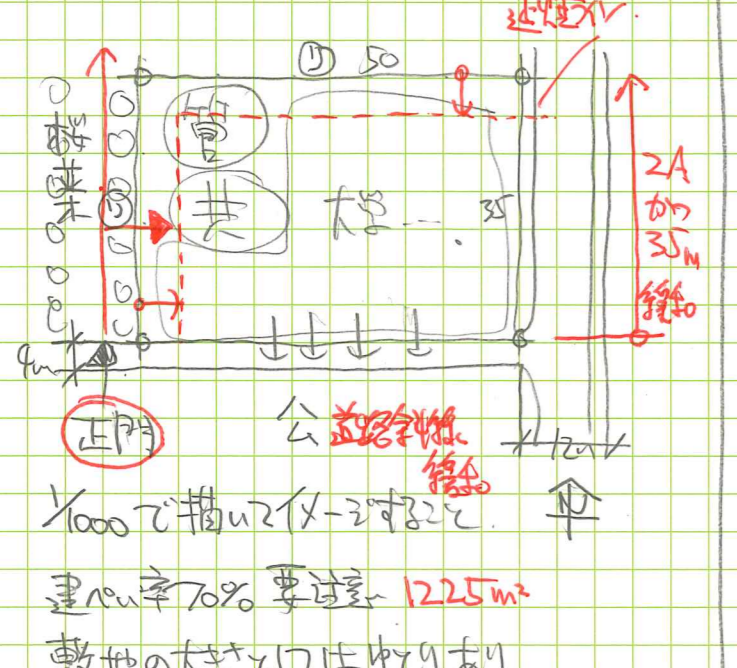 50
管
桜並木
共
大学
35
2A
かつ
35m
緩和。
4m
正門
公
道路斜線
緩和。
12m
1/1000で描いてイメージすること
N
建ぺい率70% 要注意 1225m²
敷地の大きさとしてはゆとりあり